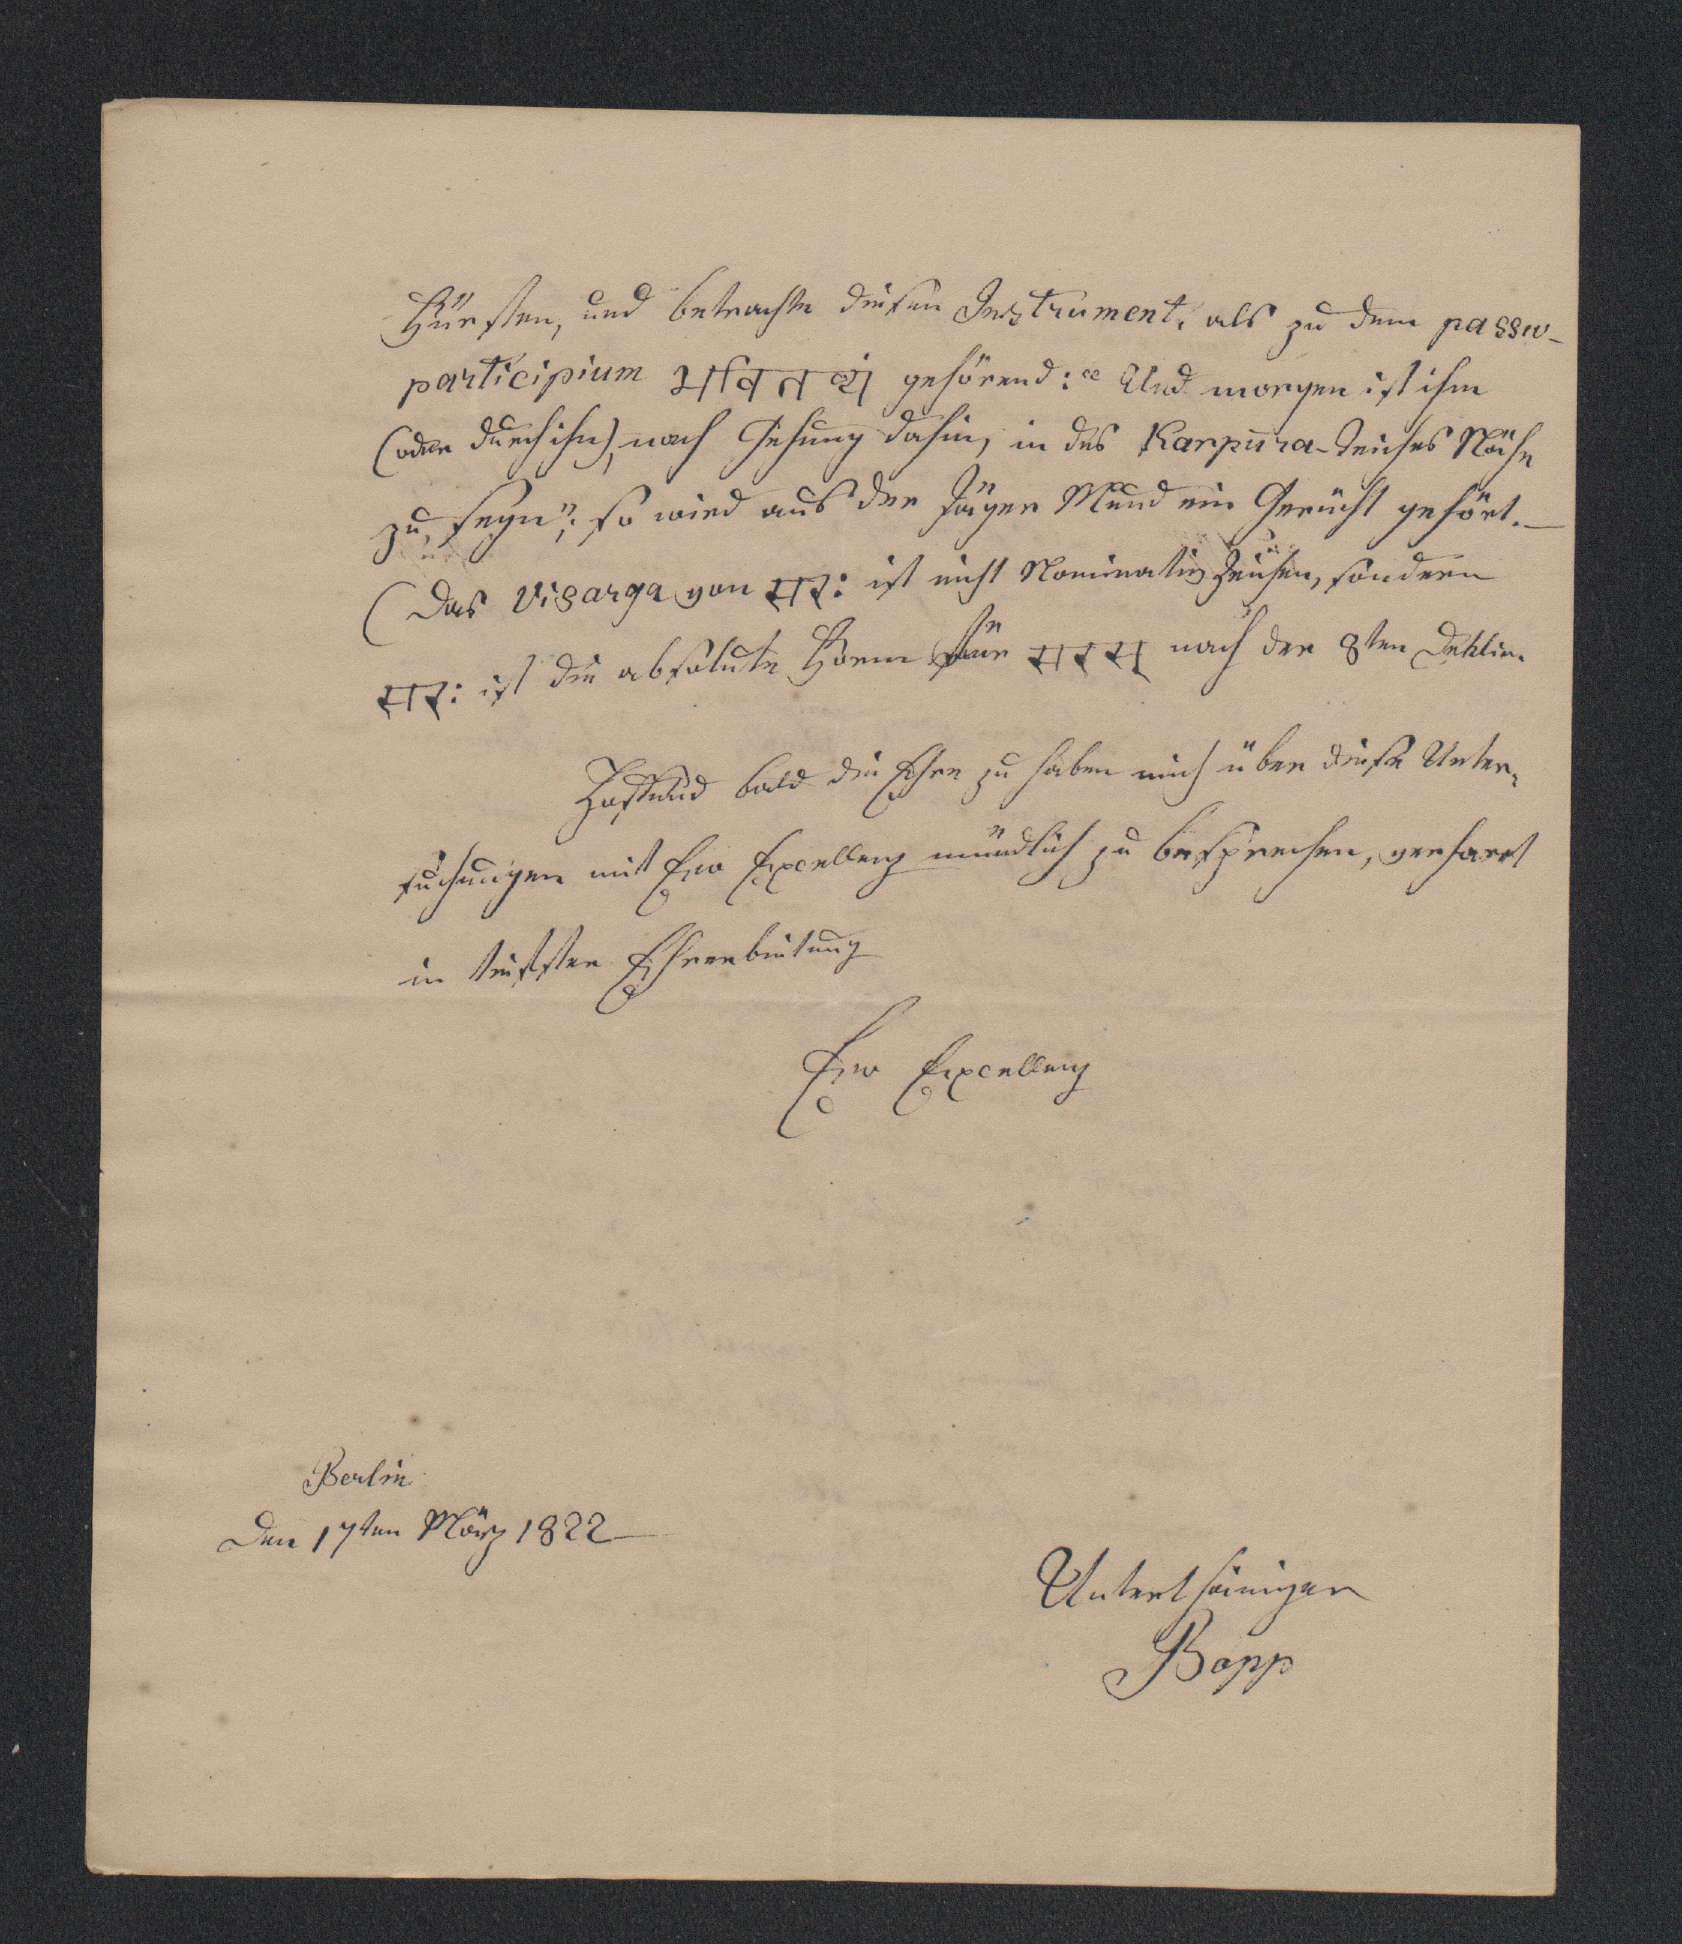 Fürsten, und betrachte diesen Instrument. als zu dem passiv-
participium भवितव्यं gehörend: "Und morgen ist ihm
(oder durch ihn), nach Gehung dahin, in des Karpūra-Teiches Nähe
zu seyn"; so wird aus der Jäger Mund ein Gerücht gehört. —
(Das Visarga von सरः ist nicht Nominativzeichen, sondern
सरः ist die absolute Form für सरस् nach der 8ten Deklin.
Hoffend bald die Ehre zu haben mich über diese Unter-
suchungen mit Ew Excellenz mündlich zu besprechen, verharrt
in tiefster Ehrerbietung
Ew Excellenz
Berlin
Den 17ten März 1822
Unterthäniger
Bopp